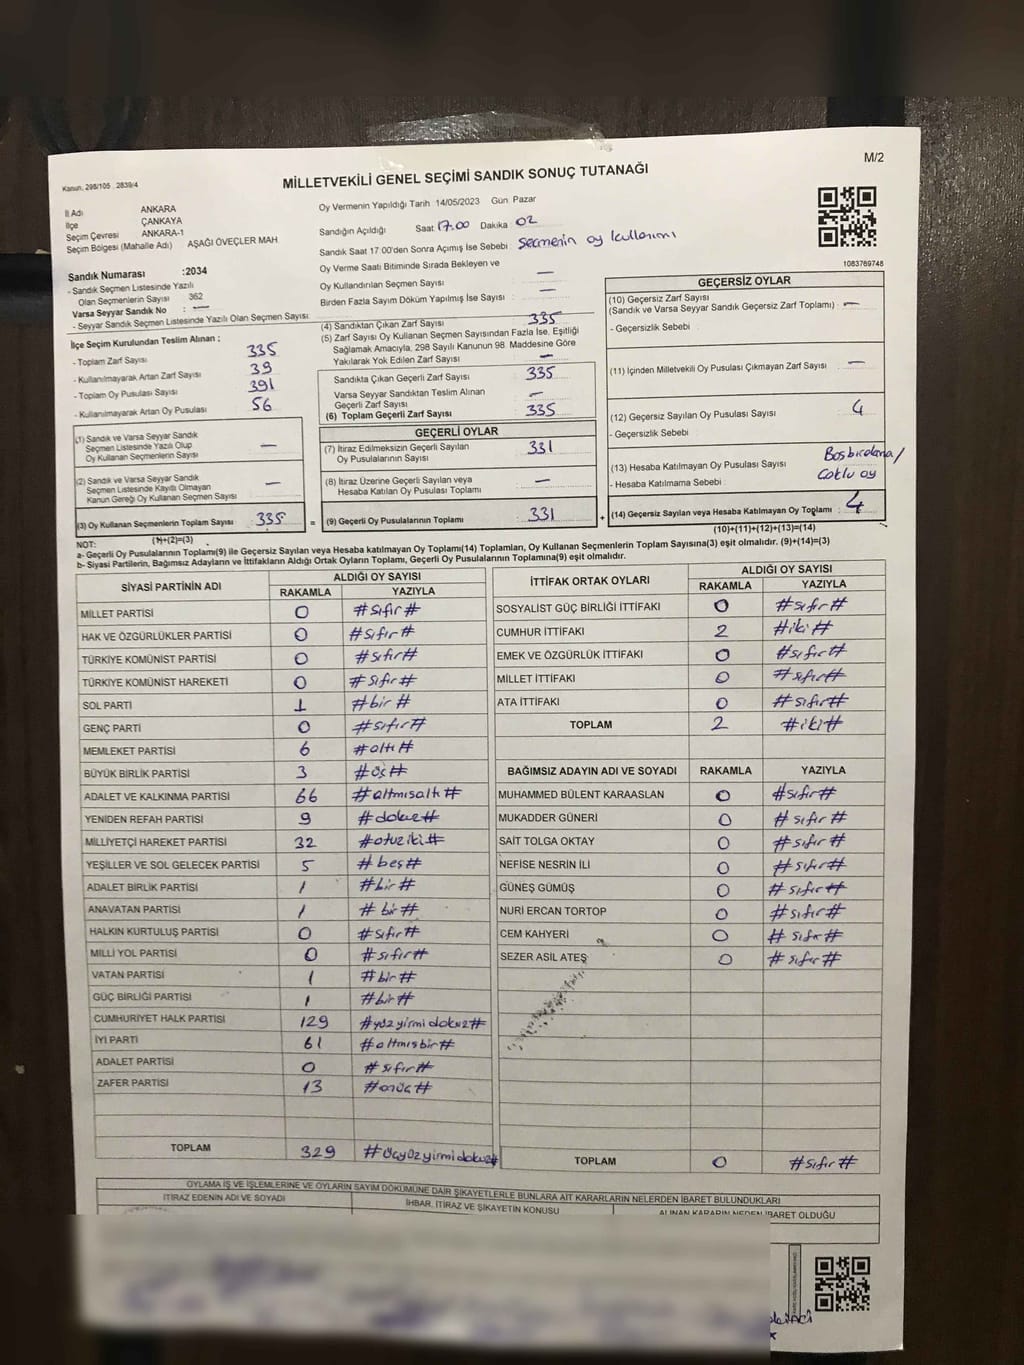 M/2
Kanun. 298/105 . 2839/4
MİLLETVEKİLİ GENEL SEÇİMİ SANDIK SONUÇ TUTANAĞI
İl Adı ANKARA
İlçe ÇANKAYA
Seçim Çevresi ANKARA-1
Seçim Bölgesi (Mahalle Adı) AŞAĞI ÖVEÇLER MAH
Oy Vermenin Yapıldığı Tarih 14/05/2023 Gün Pazar
Sandığın Açıldığı Saat 17.00 Dakika 02
Sandık Saat 17:00'den Sonra Açımış İse Sebebi : Seçmenin oy kullanımı
Oy Verme Saati Bitiminde Sırada Bekleyen ve
Oy Kullandırılan Seçmen Sayısı —
Birden Fazla Sayım Döküm Yapılmış İse Sayısı : —
1083769748
Sandık Numarası :2034
- Sandık Seçmen Listesinde Yazılı
Olan Seçmenlerin Sayısı 362
Varsa Seyyar Sandık No : —
- Seyyar Sandık Seçmen Listesinde Yazılı Olan Seçmen Sayısı:
İlçe Seçim Kurulundan Teslim Alınan :
- Toplam Zarf Sayısı 335
- Kullanılmayarak Artan Zarf Sayısı 39
- Toplam Oy Pusulası Sayısı 391
- Kullanılmayarak Artan Oy Pusulası 56
(1) Sandık ve Varsa Seyyar Sandık
Seçmen Listesinde Yazılı Olup
Oy Kullanan Seçmenlerin Sayısı —
(2) Sandık ve Varsa Seyyar Sandık
Seçmen Listesinde Kayıtlı Olmayan
Kanun Gereği Oy Kullanan Seçmen Sayısı —
(3) Oy Kullanan Seçmenlerin Toplam Sayısı 335
(1)+(2)=(3)
(4) Sandıktan Çıkan Zarf Sayısı 335
(5) Zarf Sayısı Oy Kullanan Seçmen Sayısından Fazla İse, Eşitliği
Sağlamak Amacıyla, 298 Sayılı Kanunun 98. Maddesine Göre
Yakılarak Yok Edilen Zarf Sayısı —
Sandıkta Çıkan Geçerli Zarf Sayısı 335
Varsa Seyyar Sandıktan Teslim Alınan
Geçerli Zarf Sayısı —
(6) Toplam Geçerli Zarf Sayısı 335
GEÇERLİ OYLAR
(7) İtiraz Edilmeksizin Geçerli Sayılan
Oy Pusulalarının Sayısı 331
(8) İtiraz Üzerine Geçerli Sayılan veya
Hesaba Katılan Oy Pusulası Toplamı —
= (9) Geçerli Oy Pusulalarının Toplamı 331
GEÇERSİZ OYLAR
(10) Geçersiz Zarf Sayısı
(Sandık ve Varsa Seyyar Sandık Geçersiz Zarf Toplamı) —
- Geçersizlik Sebebi
(11) İçinden Milletvekili Oy Pusulası Çıkmayan Zarf Sayısı —
(12) Geçersiz Sayılan Oy Pusulası Sayısı 4
- Geçersizlik Sebebi
(13) Hesaba Katılmayan Oy Pusulası Sayısı
- Hesaba Katılmama Sebebi
+ (14) Geçersiz Sayılan veya Hesaba Katılmayan Oy Toplamı 4
(10)+(11)+(12)+(13)=(14)
NOT:
a- Geçerli Oy Pusulalarının Toplamı(9) ile Geçersiz Sayılan veya Hesaba katılmayan Oy Toplamı(14) Toplamları, Oy Kullanan Seçmenlerin Toplam Sayısına(3) eşit olmalıdır. (9)+(14)=(3)
b- Siyasi Partilerin, Bağımsız Adayların ve İttifakların Aldığı Ortak Oyların Toplamı, Geçerli Oy Pusulalarının Toplamına(9) eşit olmalıdır.
SİYASİ PARTİNİN ADI ALDIĞI OY SAYISI
RAKAMLA YAZIYLA
MİLLET PARTİSİ 0 #sıfır#
HAK VE ÖZGÜRLÜKLER PARTİSİ 0 #sıfır#
TÜRKİYE KOMÜNİST PARTİSİ 0 #sıfır#
TÜRKİYE KOMÜNİST HAREKETİ 0 #sıfır#
SOL PARTİ 1 #bir#
GENÇ PARTİ 0 #sıfır#
MEMLEKET PARTİSİ 6 #altı#
BÜYÜK BİRLİK PARTİSİ 3 #üç#
ADALET VE KALKINMA PARTİSİ 66 #altmışaltı#
YENİDEN REFAH PARTİSİ 9 #dokuz#
MİLLİYETÇİ HAREKET PARTİSİ 32 #otuziki#
YEŞİLLER VE SOL GELECEK PARTİSİ 5 #beş#
ADALET BİRLİK PARTİSİ 1 #bir#
ANAVATAN PARTİSİ 1 #bir#
HALKIN KURTULUŞ PARTİSİ 0 #sıfır#
MİLLİ YOL PARTİSİ 0 #sıfır#
VATAN PARTİSİ 1 #bir#
GÜÇ BİRLİĞİ PARTİSİ 1 #bir#
CUMHURİYET HALK PARTİSİ 129 #yüzyirmidokuz#
İYİ PARTİ 61 #altmışbir#
ADALET PARTİSİ 0 #sıfır#
ZAFER PARTİSİ 13 #onüç#
TOPLAM 329 #üçyüzyirmidokuz#
İTTİFAK ORTAK OYLARI ALDIĞI OY SAYISI
RAKAMLA YAZIYLA
SOSYALİST GÜÇ BİRLİĞİ İTTİFAKI 0 #sıfır#
CUMHUR İTTİFAKI 2 #iki#
EMEK VE ÖZGÜRLÜK İTTİFAKI 0 #sıfır#
MİLLET İTTİFAKI 0 #sıfır#
ATA İTTİFAKI 0 #sıfır#
TOPLAM 2 #iki#
BAĞIMSIZ ADAYIN ADI VE SOYADI RAKAMLA YAZIYLA
MUHAMMED BÜLENT KARAASLAN 0 #sıfır#
MUKADDER GÜNERİ 0 #sıfır#
SAİT TOLGA OKTAY 0 #sıfır#
NEFİSE NESRİN İLİ 0 #sıfır#
GÜNEŞ GÜMÜŞ 0 #sıfır#
NURİ ERCAN TORTOP 0 #sıfır#
CEM KAHYERİ 0 #sıfır#
SEZER ASIL ATEŞ 0 #sıfır#
TOPLAM 0 #sıfır#
OYLAMA İŞ VE İŞLEMLERİNE VE OYLARIN SAYIM DÖKÜMÜNE DAİR ŞİKAYETLERLE BUNLARA AİT KARARLARIN NELERDEN İBARET BULUNDUKLARI
İTİRAZ EDENİN ADI VE SOYADI İHBAR, İTİRAZ VE ŞİKAYETİN KONUSU ALINAN KARARIN NEDEN İBARET OLDUĞU